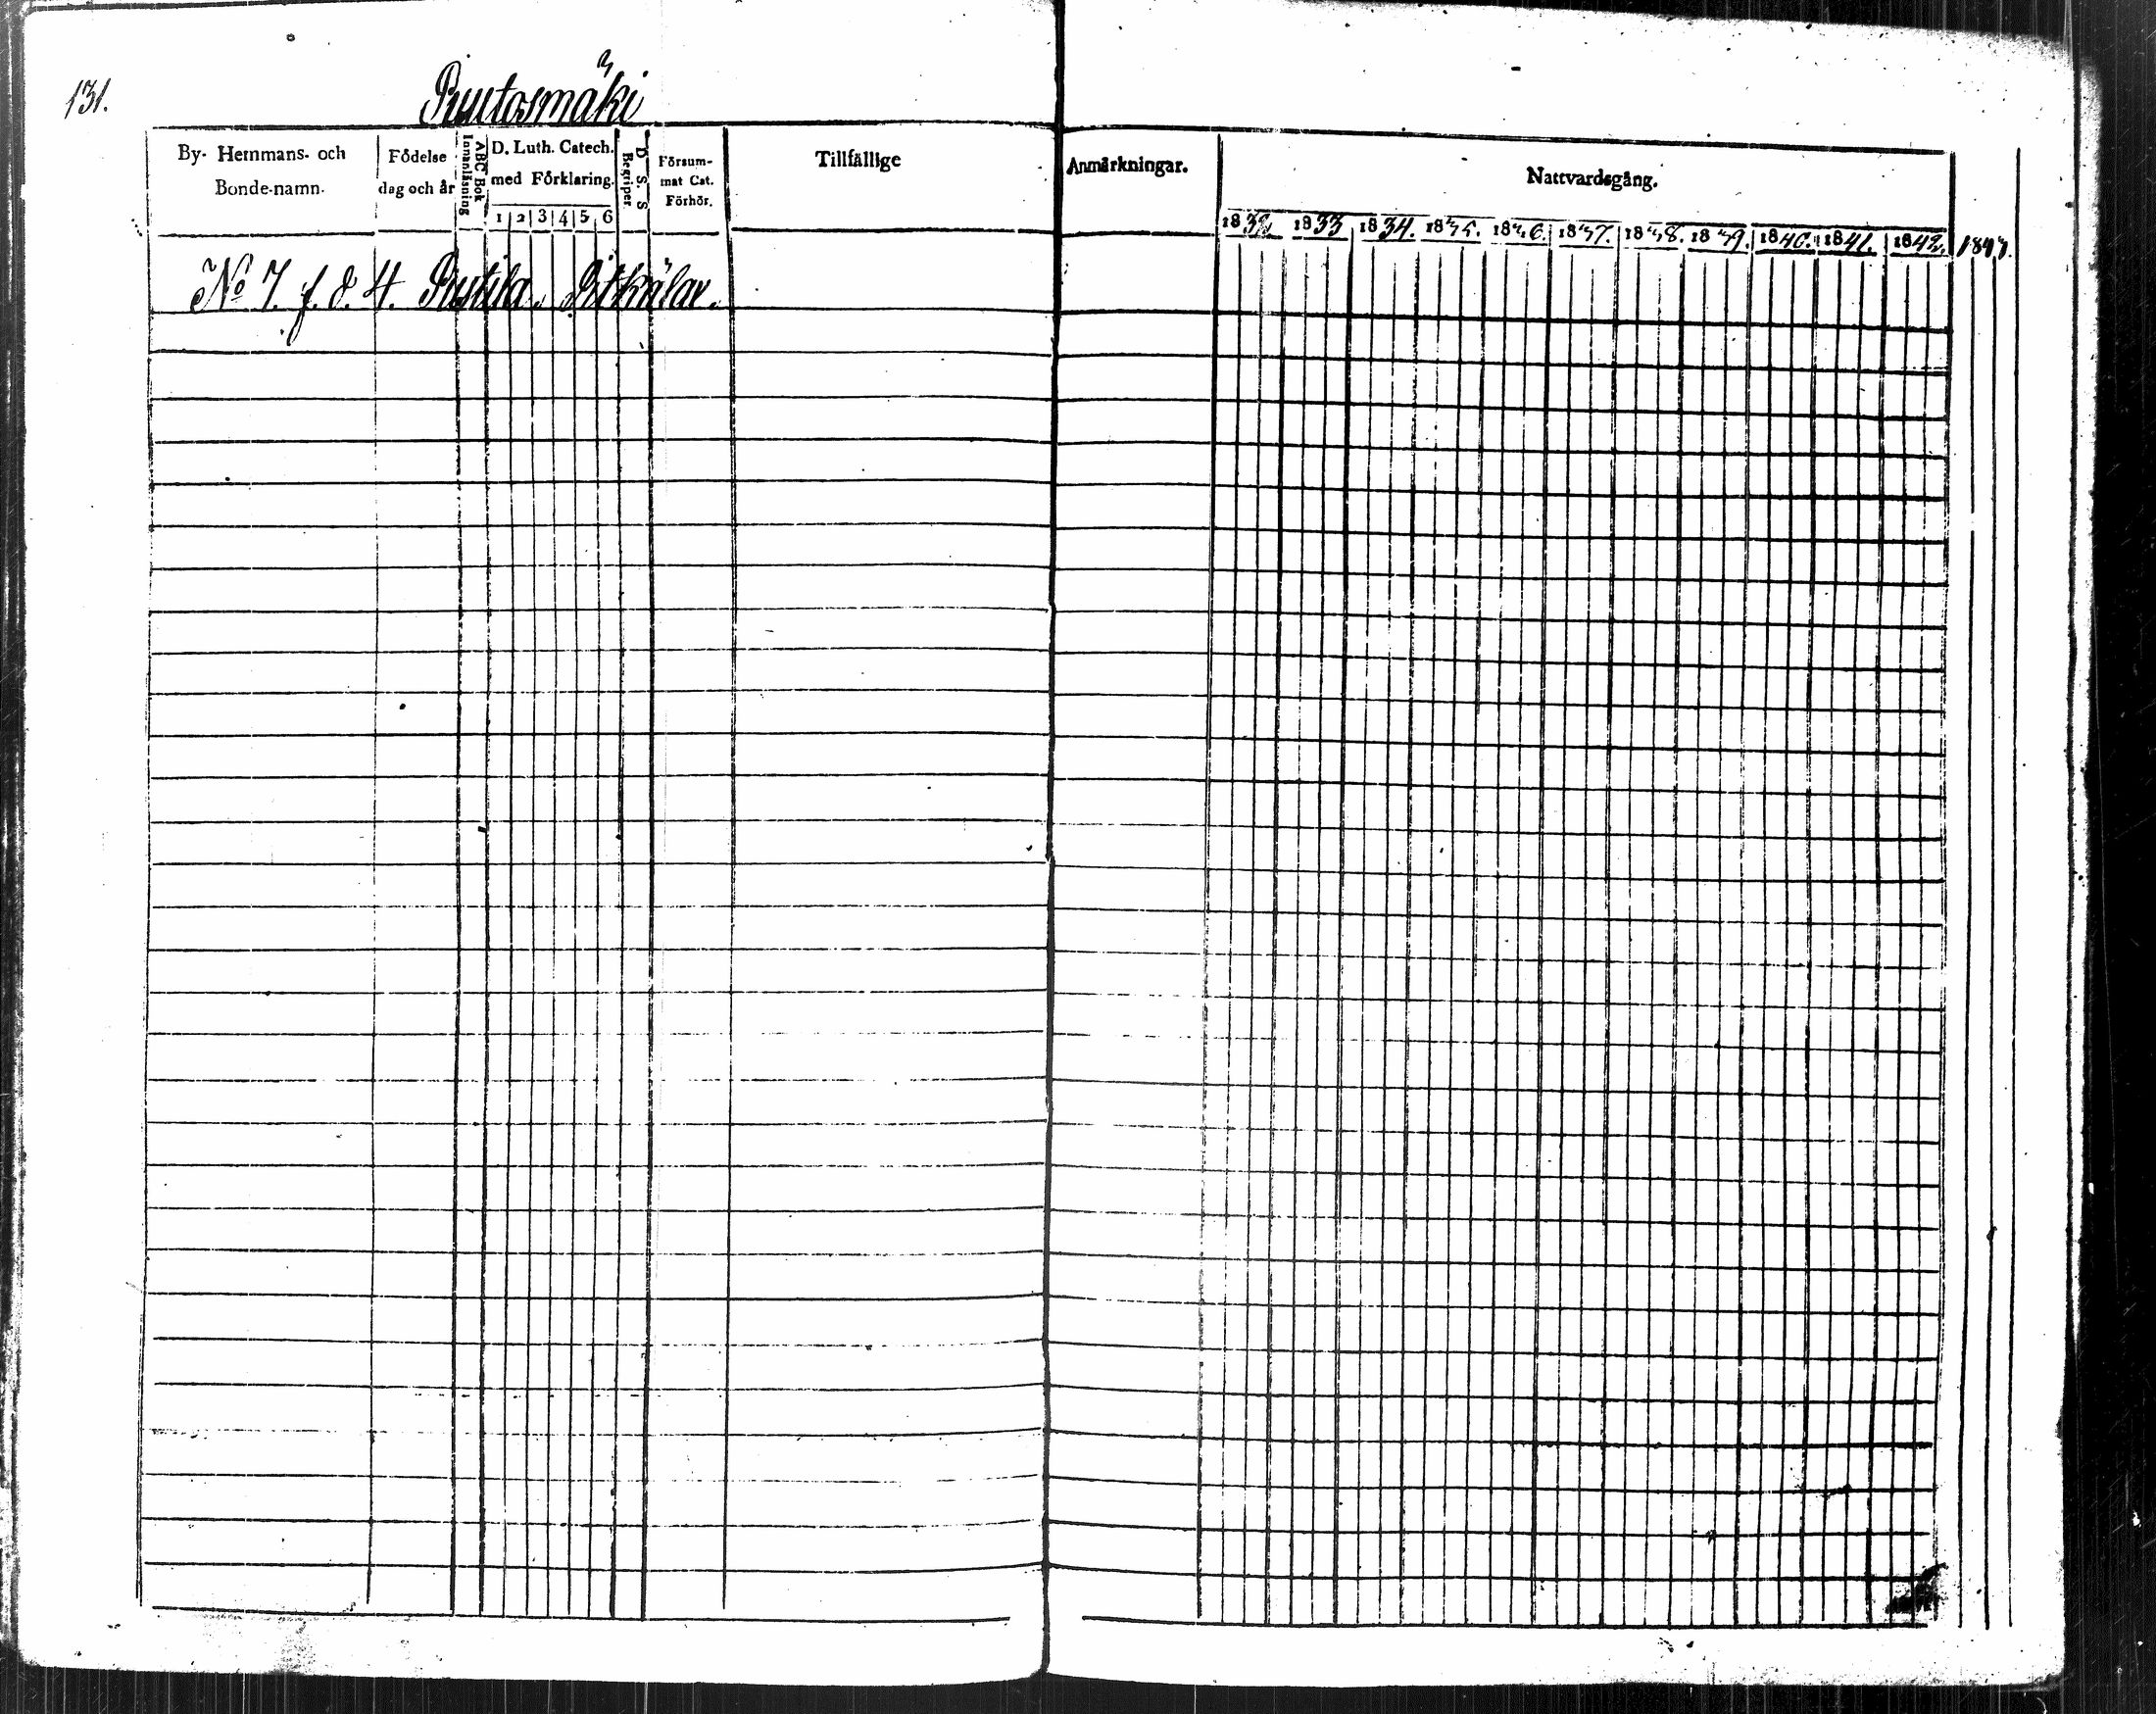 131.
Ruutosmäki
By- Hemmans- och Bonde-namn.
Födelse dag och år
Innanläsning
ABC Bok
D. Luth. Catech. med Förklaring.
1 2 3 4 5 6
Begriper
D. S. S
Försum-mat Cat. Förhör.
Tillfällige
Anmärkningar.
Nattvardsgång.
1832 1833 1834. 1835. 1836. 1837. 1838. 1839. 1840. 1841. 1842. 1843.
No 7. f. d. 4. Pitkälax.